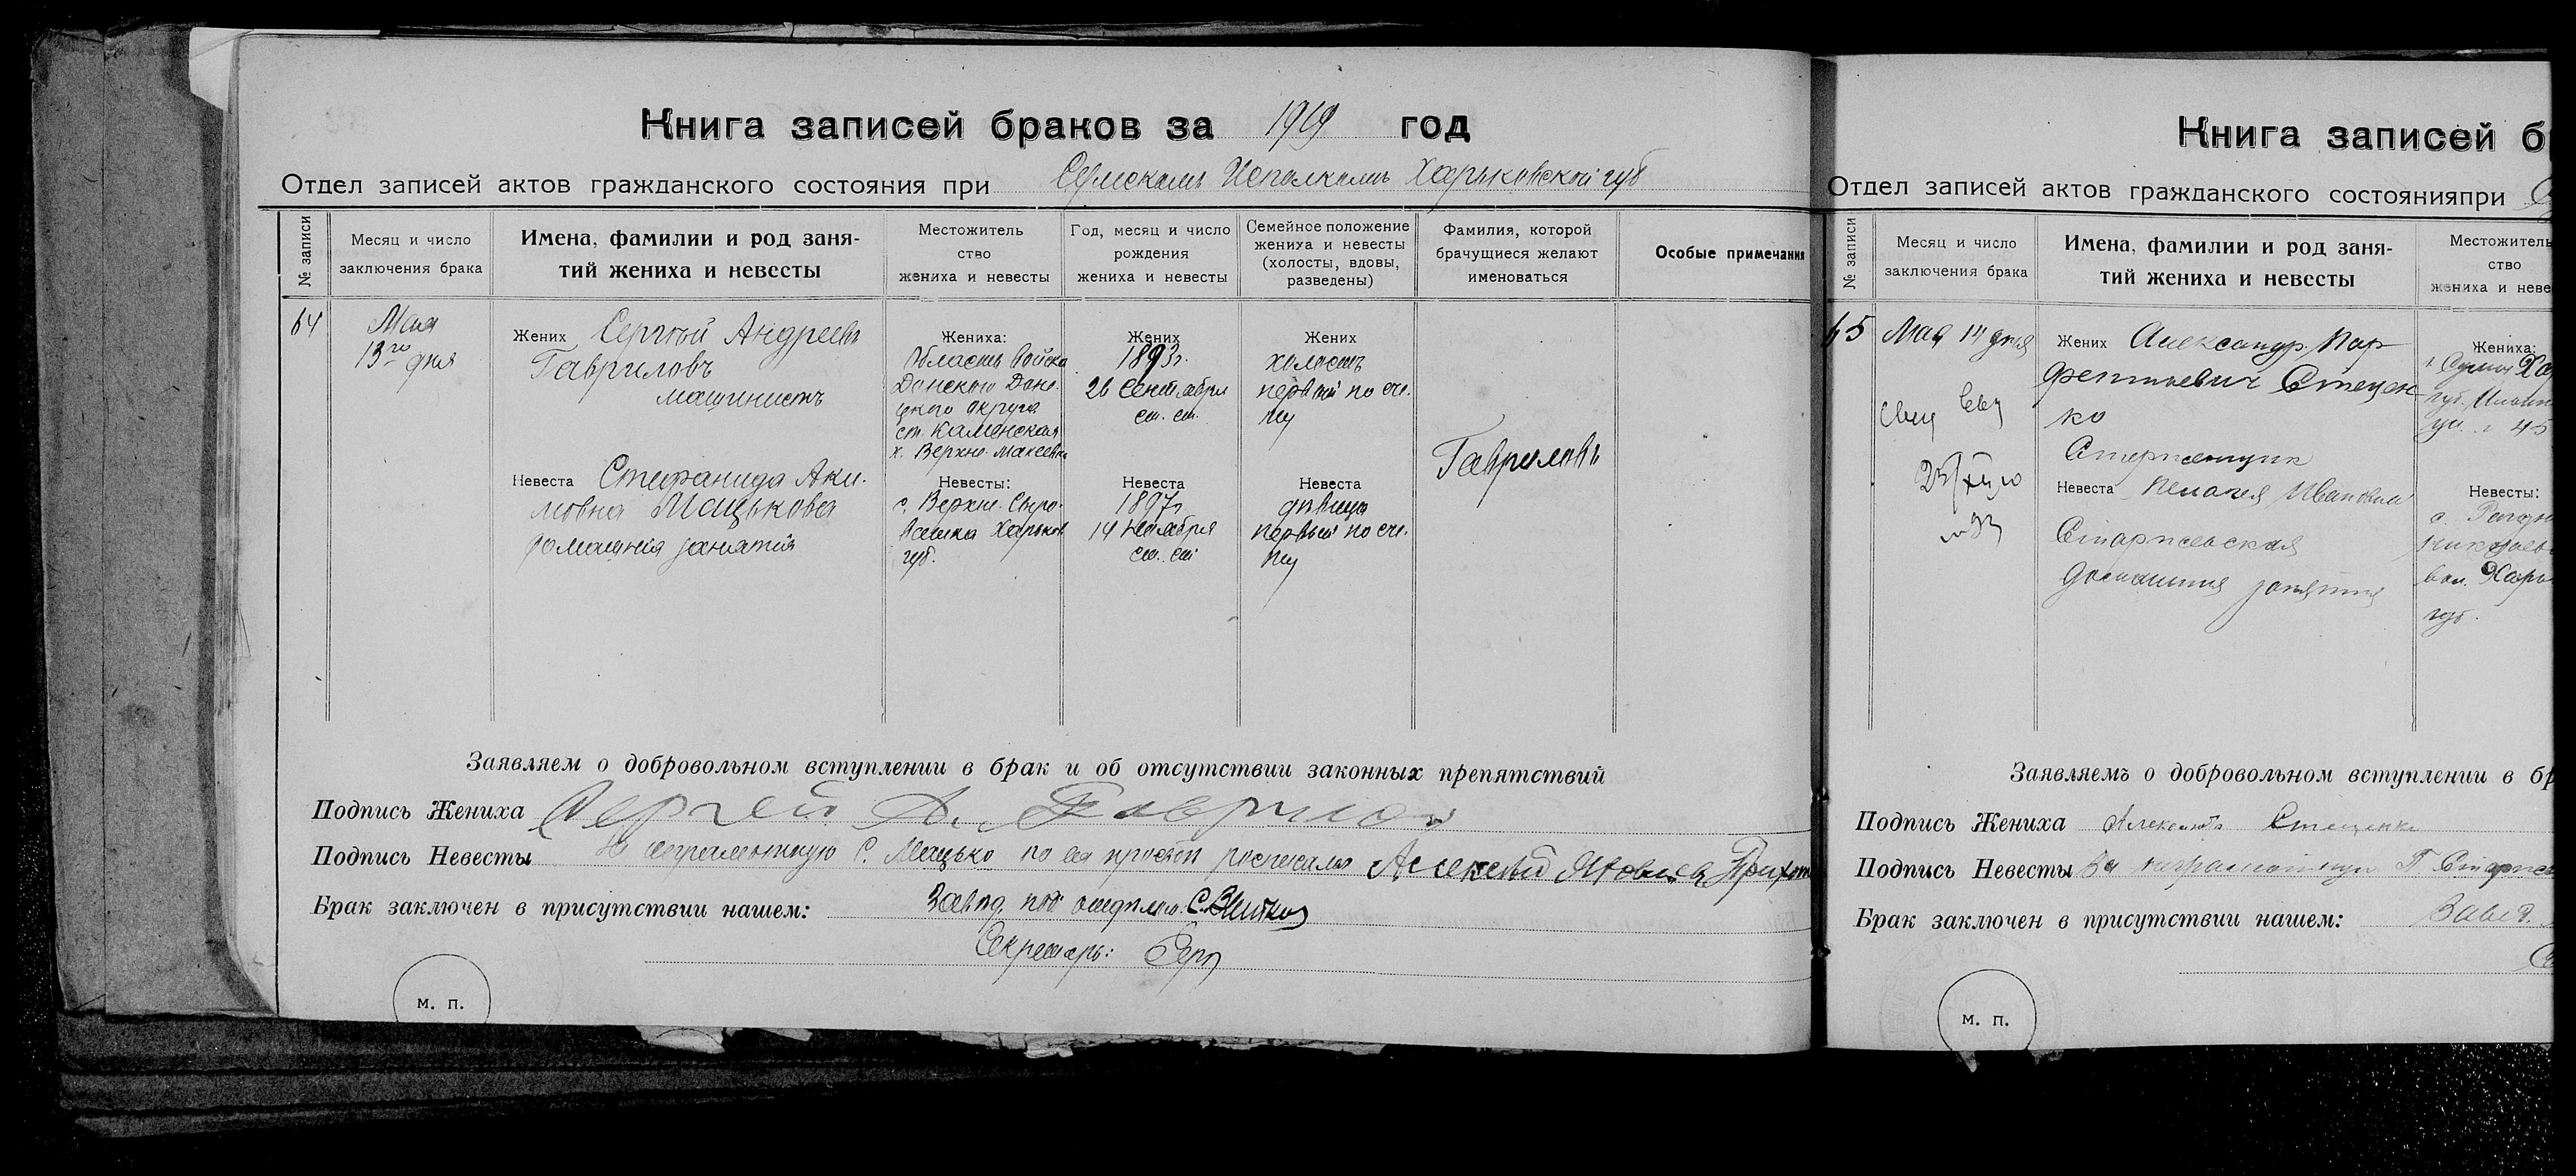 Книга записей браков за 1919 год
Отдел записей актов гражданского состояния при Сумскомъ Исполкомъ Харьковской губ
№ записи
Месяц и число
заключения брака
Имена, фамилии и род заня-
тий жениха и невесты
Местожитель
ство
жениха и невесты
Год, месяц и число
рождения
жениха и невесты
Семейное положение
жениха и невесты
(холосты, вдовы,
разведены)
Фамилия, которой
брачущиеся желают
именоваться
Особые примечания
64
Мая
13го дня
Жених Сергѣй Андреевъ
Гавриловъ
машинистъ
Невеста Стефанида Аки-
мовна Мацькова
домашнія занятія
Жениха:
Область Войска
Донского Доне-
цкого округа
ст. Каменская
х. Верхне-Макеевка
Невесты:
с. Верхн. Сыро-
ватка Харьков
губ.
Жених
1893г.
26 Сентября
ст. ст.
Невеста
1897г
14 Ноября
ст. ст
Жених
холостъ
первый по сче-
ту
Невеста
дѣвица
первый по сче-
ту
Гавриловъ
Заявляем о добровольном вступлении в брак и об отсутствии законных препятствий
Подпись Жениха Сергей А. Гаврилов
Подпись Невесты За неграмотную С. Мацько по ея просьбѣ росписался Алексѣй Яковлев
Брак заключен в присутствии нашем: Завѣд. под отдѣлом. С.
Секретарь:
м. п.
Книга записей б
Отдел записей актов гражданского состоянияпри
№ записи
Месяц и число
заключения брака
Имена, фамилии и род заня-
тий жениха и невесты
Местожитель
ство
жениха и неве
65
Мая 14 дня
Жених Александр Пар
фентьевич Стецен-
ко
Невеста Пелагея Ивановна
домашния занятия
Жениха:
г. Сумы Хар
губ.
Невесты:
вол. Харь
губ.
Заявляемъ о добровольном вступлении в бр
Подпись Жениха Александръ Стеценко
Подпись Невесты За неграмотную П
Брак заключен в присутствии нашем: Завед.
м. п.